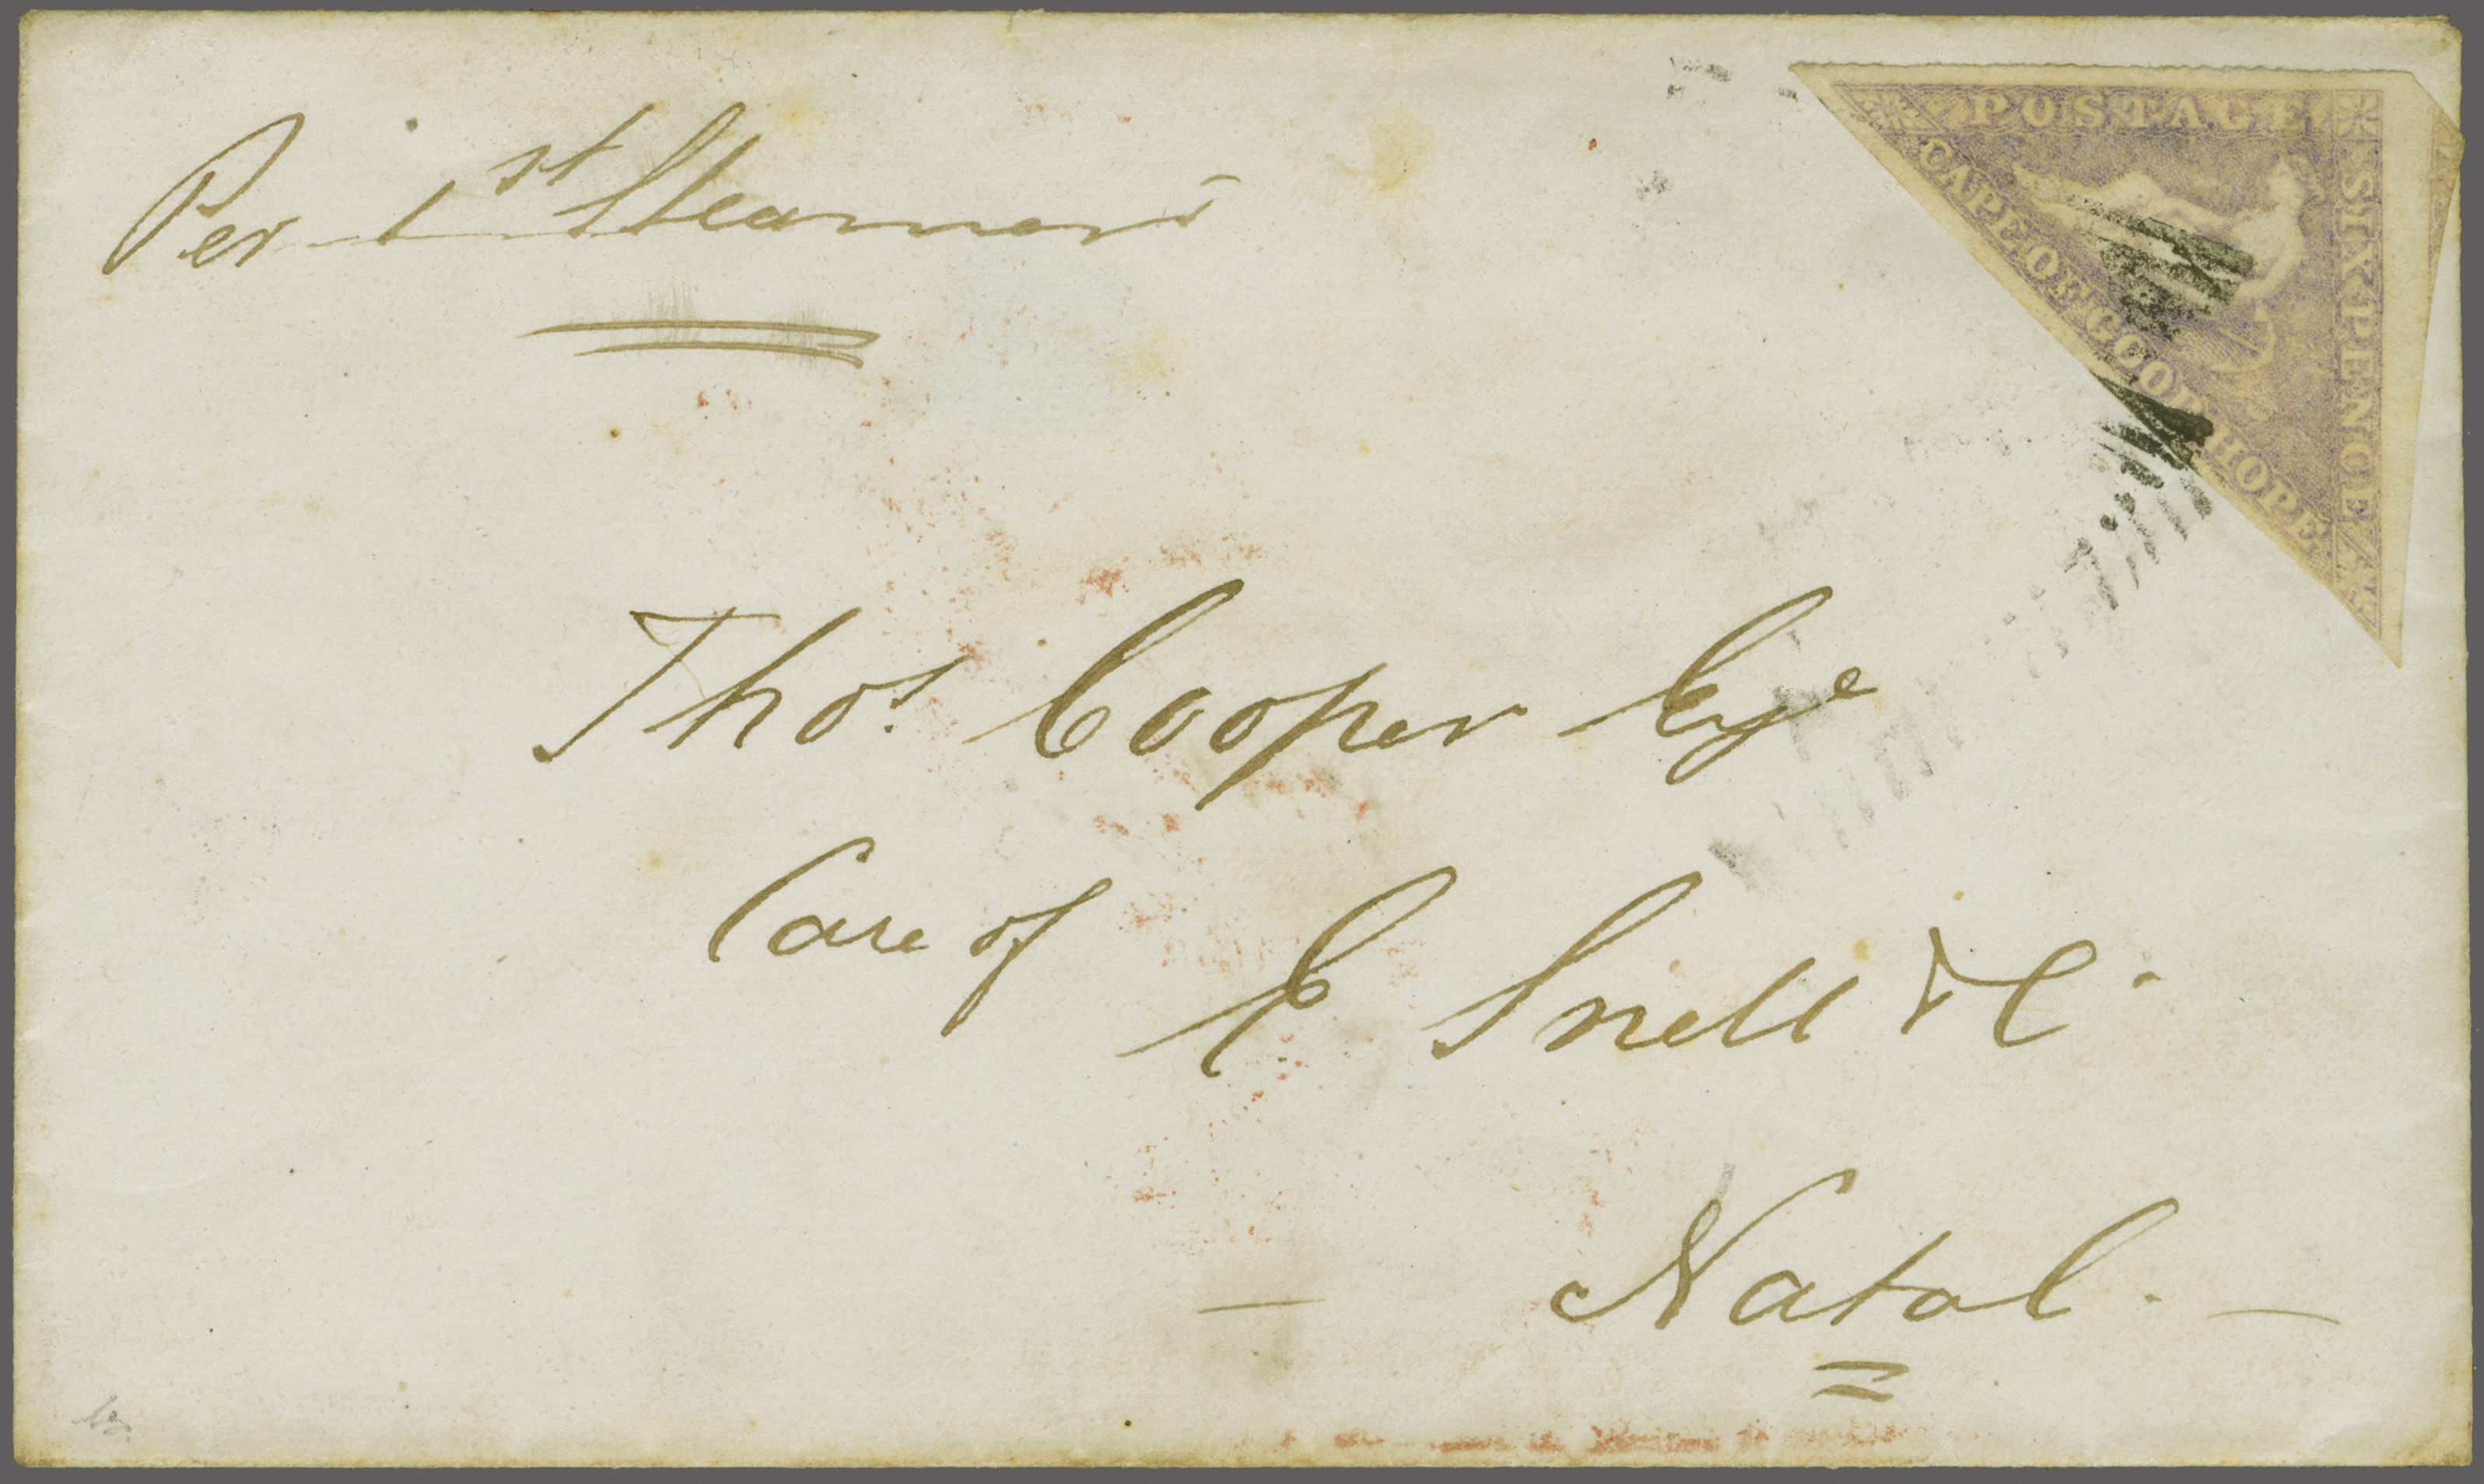 Per 1st Steamer
POSTAGE
SIX PENCE
CAPE OF GOOD HOPE
Thos. Cooper Esqe
Care of
E Snell & C.
Natal.